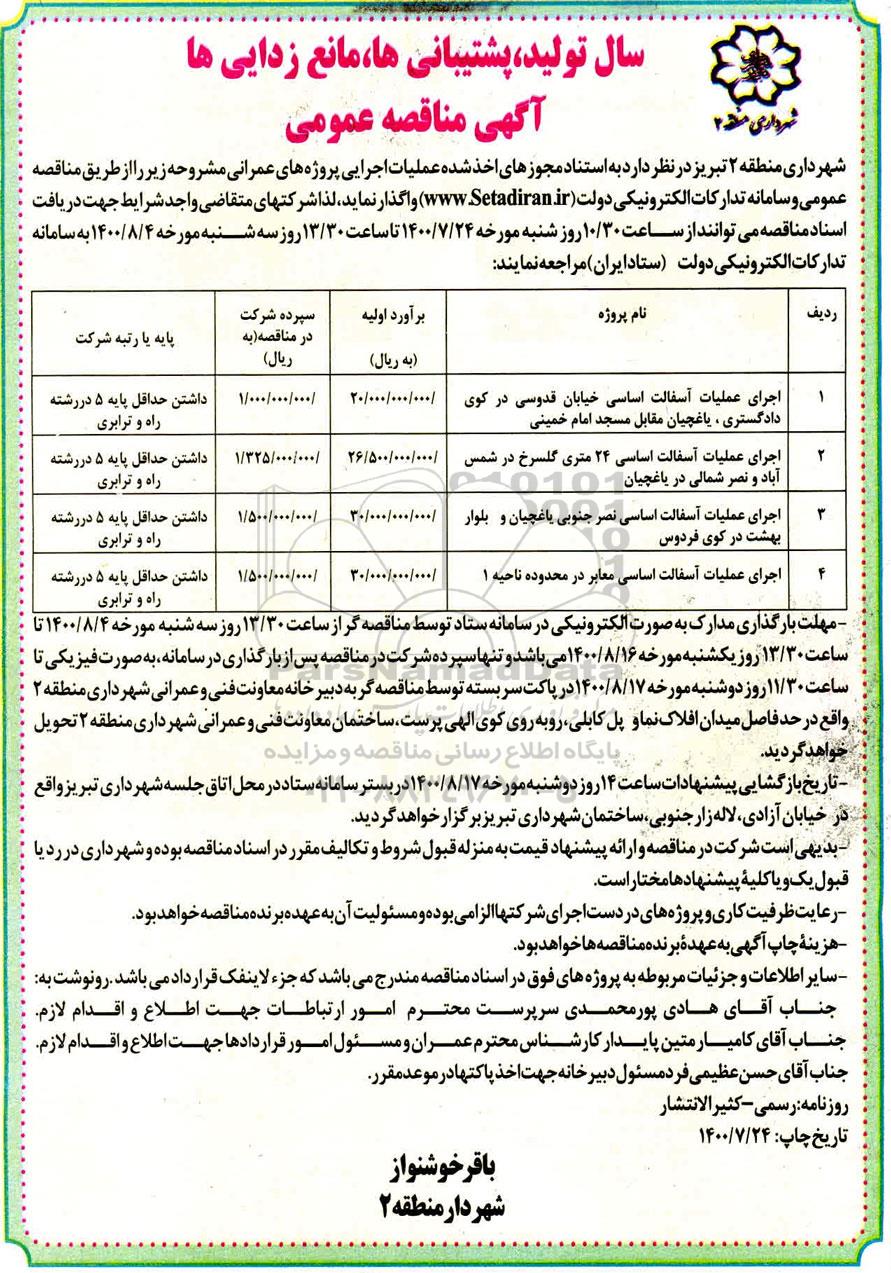 سال تولید،پشتیبانی ها،مانع زدایی ها
آگهی مناقصه عمومی
شهرداری منطقه ۲
شهرداری منطقه ۲ تبریز در نظر دارد به استناد مجوزهای اخذ شده عملیات اجرایی پروژه های عمرانی مشروحه زیر را از طریق مناقصه
عمومی و سامانه تدارکات الکترونیکی دولت (www.Setadiran.ir) واگذار نماید، لذا شرکتهای متقاضی واجد شرایط جهت دریافت
اسناد مناقصه می توانند از ساعت ۱۰/۳۰ روز شنبه مورخه ۱۴۰۰/۷/۲۴ تا ساعت ۱۳/۳۰ روز سه شنبه مورخه ۱۴۰۰/۸/۴ به سامانه
تدارکات الکترونیکی دولت (ستاد ایران) مراجعه نمایند:
ردیف	نام پروژه	برآورد اولیه (به ریال)	سپرده شرکت در مناقصه(به ریال)	پایه یا رتبه شرکت
۱	اجرای عملیات آسفالت اساسی خیابان قدوسی در کوی دادگستری ، یاغچیان مقابل مسجد امام خمینی	۲۰/۰۰۰/۰۰۰/۰۰۰/	۱/۰۰۰/۰۰۰/۰۰۰/	داشتن حداقل پایه ۵ دررشته راه و ترابری
۲	اجرای عملیات آسفالت اساسی ۲۴ متری گلسرخ در شمس آباد و نصر شمالی در یاغچیان	۲۶/۵۰۰/۰۰۰/۰۰۰/	۱/۳۲۵/۰۰۰/۰۰۰/	داشتن حداقل پایه ۵ دررشته راه و ترابری
۳	اجرای عملیات آسفالت اساسی نصر جنوبی یاغچیان و بلوار بهشت در کوی فردوس	۳۰/۰۰۰/۰۰۰/۰۰۰/	۱/۵۰۰/۰۰۰/۰۰۰/	داشتن حداقل پایه ۵ دررشته راه و ترابری
۴	اجرای عملیات آسفالت اساسی معابر در محدوده ناحیه ۱	۳۰/۰۰۰/۰۰۰/۰۰۰/	۱/۵۰۰/۰۰۰/۰۰۰/	داشتن حداقل پایه ۵ دررشته راه و ترابری
-مهلت بارگذاری مدارک به صورت الکترونیکی در سامانه ستاد توسط مناقصه گر از ساعت ۱۳/۳۰ روز سه شنبه مورخه ۱۴۰۰/۸/۴ تا
ساعت ۱۳/۳۰ روز یکشنبه مورخه ۱۴۰۰/۸/۱۶ می باشد و تنها سپرده شرکت در مناقصه پس از بارگذاری در سامانه، به صورت فیزیکی تا
ساعت ۱۱/۳۰ روز دوشنبه مورخه ۱۴۰۰/۸/۱۷ در پاکت سربسته توسط مناقصه گر به دبیرخانه معاونت فنی و عمرانی شهرداری منطقه ۲
واقع در حد فاصل میدان افلاک نما و پل کابلی، روبه روی کوی الهی پرست، ساختمان معاونت فنی و عمرانی شهرداری منطقه ۲ تحویل
خواهد گردید.
-تاریخ بازگشایی پیشنهادات ساعت ۱۴ روز دوشنبه مورخه ۱۴۰۰/۸/۱۷ در بستر سامانه ستاد در محل اتاق جلسه شهرداری تبریز واقع
در خیابان آزادی، لاله زار جنوبی، ساختمان شهرداری تبریز برگزار خواهد گردید.
-بدیهی است شرکت در مناقصه و ارائه پیشنهاد قیمت به منزله قبول شروط و تکالیف مقرر در اسناد مناقصه بوده و شهرداری در رد یا
قبول یک و یا کلیۀ پیشنهادها مختار است.
-رعایت ظرفیت کاری و پروژه های در دست اجرای شرکتها الزامی بوده و مسئولیت آن به عهده برنده مناقصه خواهد بود.
-هزینۀ چاپ آگهی به عهدۀ برنده مناقصه ها خواهد بود.
-سایر اطلاعات و جزئیات مربوطه به پروژه های فوق در اسناد مناقصه مندرج می باشد که جزء لاینفک قرارداد می باشد. رونوشت به:
جناب آقای هادی پورمحمدی سرپرست محترم امور ارتباطات جهت اطلاع و اقدام لازم.
جناب آقای کامیار متین پایدار کارشناس محترم عمران و مسئول امور قراردادها جهت اطلاع و اقدام لازم.
جناب آقای حسن عظیمی فرد مسئول دبیرخانه جهت اخذ پاکتها در موعد مقرر.
روزنامه:رسمی-کثیرالانتشار
تاریخ چاپ: ۱۴۰۰/۷/۲۴
باقر خوشنواز
شهردار منطقه ۲
ParsNamadData
پایگاه اطلاع رسانی مناقصه و مزایده